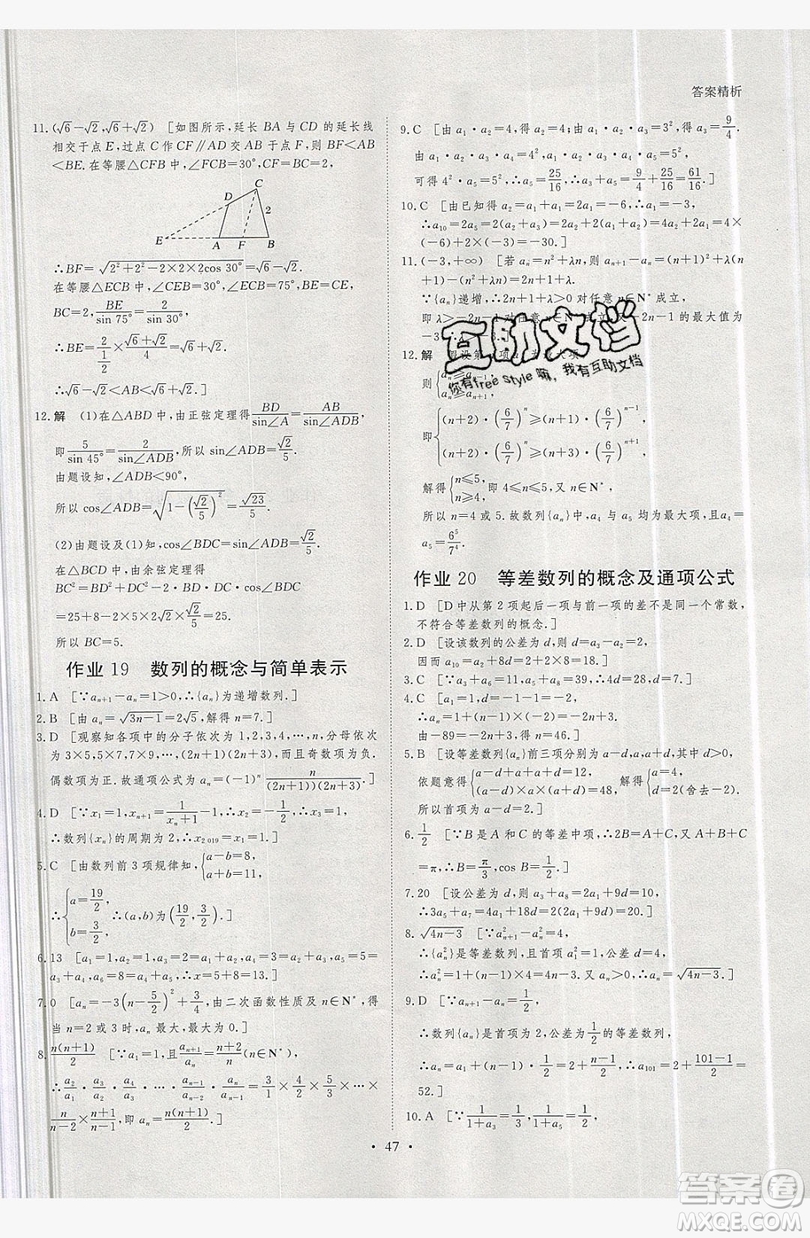 答案精析
11.(√6-√2,√6+√2) [如图所示,延长 BA 与 CD 的延长线
相交于点 E,过点 C 作 CF∥AD 交 AB 于点 F,则 BF<AB
<BE.在等腰△CFB 中,∠FCB=30°,CF=BC=2,
C
D
2
E A F B
∴BF=√(2²+2²-2×2×2cos 30°)=√6-√2.
在等腰△ECB 中,∠CEB=30°,∠ECB=75°,BE=CE,
BC=2,BE/sin 75°=2/sin 30°,
∴BE=2/(1/2)×(√6+√2)/4=√6+√2.
∴√6-√2<AB<√6+√2.]
12.解 (1)在△ABD 中,由正弦定理得 BD/sin∠A=AB/sin∠ADB,
即 5/sin 45°=2/sin∠ADB,所以 sin∠ADB=√2/5.
由题设知,∠ADB<90°,
所以 cos∠ADB=√(1-(√2/5)²)=√23/5.
(2)由题设及(1)知,cos∠BDC=sin∠ADB=√2/5.
在△BCD 中,由余弦定理得
BC²=BD²+DC²-2BD·DCcos∠BDC
=25+8-2×5×2√2×√2/5=25.
所以 BC=5.
作业 19 数列的概念与简单表示
1.A [∵aₙ₊₁-aₙ=1>0,∴{aₙ}为递增数列.]
2.B [由 aₙ=√(3n-1)=2√5,解得 n=7.]
3.D [观察知各项中的分子依次为 1,2,3,4,…,分母依次
为 3×5,5×7,7×9,…,(2n+1)(2n+3),而且奇数项为负,
偶数项为正.故通项公式为 aₙ=(-1)ⁿ n/((2n+1)(2n+3)).]
4.D [∵x₁=1,xₙ₊₁=1/(xₙ+1)-1,∴x₂=-1/2,∴x₃=1,
∴数列{xₙ}的周期为 2,∴x₂ ₀₁₉=x₁=1.]
5.C [由数列前 3 项规律知,{a-b=8, a+b=11,
∴{a=19/2, b=3/2, ∴(a,b)为(19/2,3/2).]
6.13 [a₁=1,a₂=1,a₃=2,a₄=3,a₅=5,a₆=8,∴x=13.]
7.0 [aₙ=-3(n-5/2)²+3/4,由二次函数性质及 n∈N*,得
当 n=2 或 3 时,aₙ 最大,最大为 0.]
8.n(n+1)/2 [∵a₁=1,且 aₙ₊₁/aₙ=(n+2)/n(n∈N*).
∴a₂/a₁·a₃/a₂·a₄/a₃·…·aₙ₋₁/aₙ₋₂·aₙ/aₙ₋₁=3/1×4/2×5/3×…×
n/(n-2)×(n+1)/(n-1),即 aₙ=n(n+1)/2.]
9.C [由 a₁·a₂=4,求得 a₂=4,由 a₁·a₂·a₃=3²,得 a₃=9/4.
由 a₁·a₂·a₃·a₄=4²,∴a₄=16/9,由 a₁·a₂·a₃·a₄·a₅=5²,
可得 4²·a₅=5²,∴a₅=25/16,∴a₃+a₅=9/4+25/16=61/16.]
10.C [由已知得 a₂=a₁+a₁=2a₁=-6,∴a₁=-3.
∴a₁₀=2a₅=2(a₂+a₃)=2a₂+2(a₁+a₂)=4a₂+2a₁=4×
(-6)+2×(-3)=-30.]
11.(-3,+∞) [若 aₙ=n²+λn,则 aₙ₊₁-aₙ=(n+1)²+
λ(n+1)-(n²+λn)=2n+1+λ.
∵{aₙ}递增,∴2n+1+λ>0 对任意 n∈N* 成立,
即 λ>-2n-1 对任意 n∈N* 成立,-2n-1 的最大值为
-3.]
12.解 假设第
则{
即{(n+2)·(6/7)ⁿ≥(n+1)·(6/7)ⁿ⁻¹,
(n+2)·(6/7)ⁿ≥(n+3)·(6/7)ⁿ⁺¹.
解得{n≤5, n≥4, 即 4≤n≤5,又 n∈N*,
所以 n=4 或 5.故数列{aₙ}中 a₄ 与 a₅ 均为最大项,且 a₄=
a₅=6⁵/7⁴.
互助文档
你有free style嘛,我有互助文档
作业 20 等差数列的概念及通项公式
1.D [D中从第 2 项起后一项与前一项的差不是同一个常数,
不符合等差数列的概念.]
2.D [设该数列的公差为 d,则由 a₃-a₁=2d=8,得 d=4,
因而 a₁₀=a₂+8d=2+8×4=34.]
3.C [因为 a₇-2a₄=-1,a₃=0,所以
4.C [a₁=1,d=-1-1=-2,
∴aₙ=1+(n-1)·(-2)=-2n+3,
由-89=-2n+3,得 n=46.]
5.B [设等差数列{aₙ}前三项分别为 a-d,a,a+d(d>0).
依题意得{(a-d)+a+(a+d)=12, (a-d)×a×(a+d)=48. 解得{a=4, d=2(舍去-2).
所以首项为 a-d=2.]
6.1/2 [∵B 是 A 和 C 的等差中项,∴2B=A+C,又 A+B+C
=π,∴B=π/3,cos B=1/2.]
7.20 [设公差为 d,则 a₃+a₈=2a₁+9d=10,
∴3a₅+a₇=4a₁+18d=2(2a₁+9d)=20.]
8.√(4n-3) [∵a²ₙ₊₁-a²ₙ=4,
∴{a²ₙ}是等差数列,且首项 a₁²=1,公差 d=4,
∴a²ₙ=1+(n-1)·4=4n-3.又 aₙ>0,∴aₙ=√(4n-3).]
9.D [∵2aₙ₊₁-2aₙ=1,∴aₙ₊₁-aₙ=1/2.
∴数列{aₙ}是首项为 2,公差为1/2的等差数列,
∴aₙ=a₁+1/2(n-1)=2+(n-1)/2,∴a₁₀₁=2+(101-1)/2=
52.]
10.A [∵1/(1+a₃)=1/3,1/(1+a₇)=1/2,
· 47 ·
答案圈
MXQE.COM